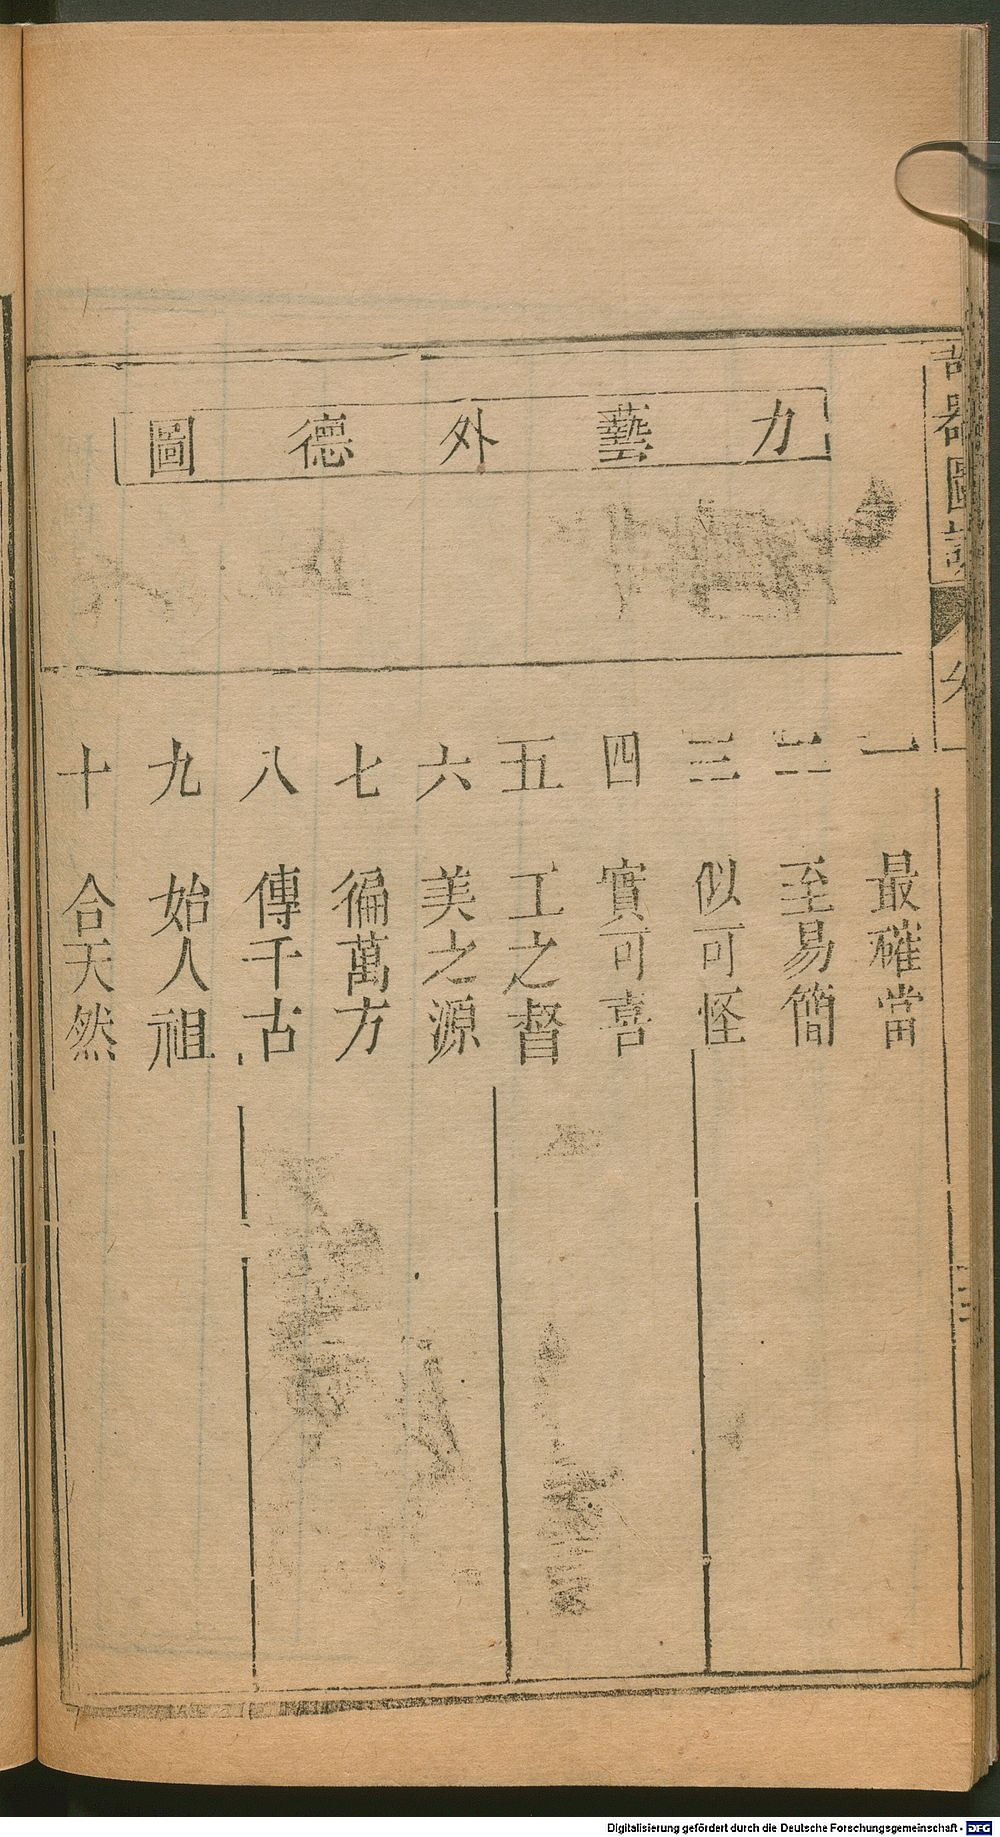 力藝外德圖
一 最確當
二 至易簡
三 似可怪
四 實可喜
五 工之督
六 美之源
七 徧萬方
八 傳千古
九 始人祖
十 合天然
器圖說
Digitalisierung gefördert durch die Deutsche Forschungsgemeinschaft - DFG